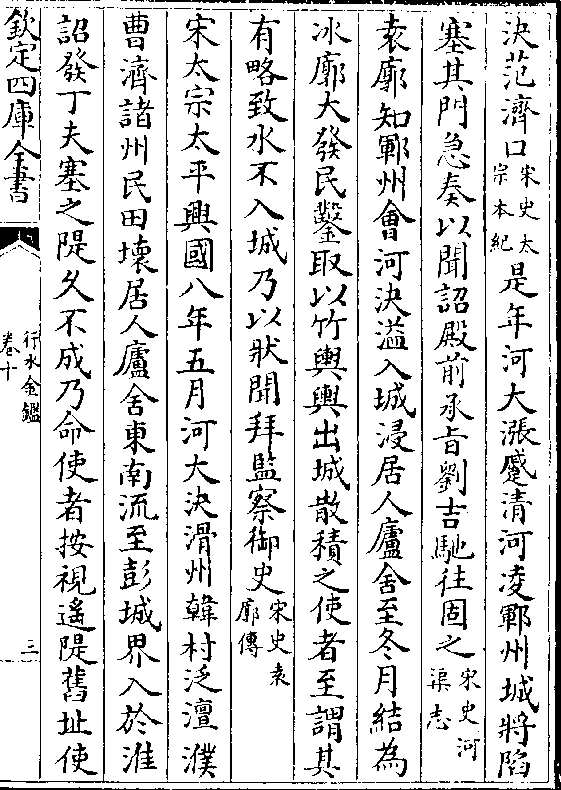 決范濟口宋史太宗本紀是年河大漲蹙清河凌鄆州城將陷
塞其門急奏以聞詔殿前承旨劉吉馳往固之宋史河渠志
袁廓知鄆州會河決溢入城浸居人廬舍至冬月結為
冰廓大發民鑿取以竹輿輿出城散積之使者至謂其
有略致水不入城乃以狀聞拜監察御史宋史袁廓傳
宋太宗太平興國八年五月河大決滑州韓村泛澶濮
曹濟諸州民田壞居人廬舍東南流至彭城界入於淮
詔發丁夫塞之隄久不成乃命使者按視遙隄舊址使
欽定四庫全書
行水金鑑
卷十
三